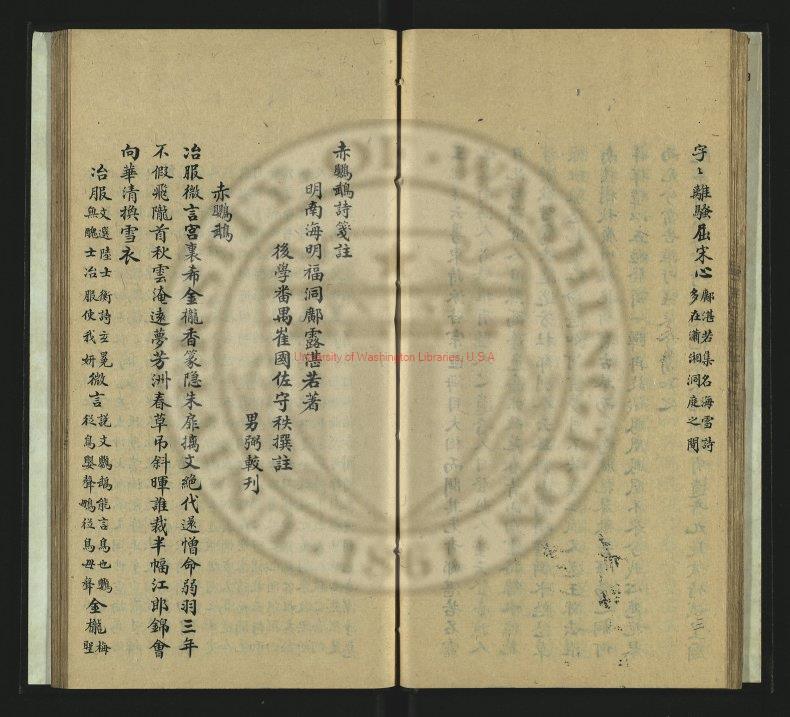 字〻離騷屈宋心 鄺湛若集名海雪詩
多在瀟湘洞庭之間
赤鸚鵡詩箋註
明南海明福洞鄺露湛若著
後學番禺崔國佐守秩撰註
男弼較刊
赤鸚鵡
冶服微言宮裏希金櫳香篆隐朱扉摛文絶代還憎命弱羽三年
不假飛隴首秋雲淹遠夢芳洲春草吊斜暉誰裁半幅江郎錦會
向華清換雪衣
冶服 文選陸士衡詩玄冕
無醜士冶服使我妍 微言 說文鸚鵡能言鳥也鸚
從鳥嬰聲鵡從鳥母聲 金櫳 梅
聖
University of Washington Libraries, U.S.A